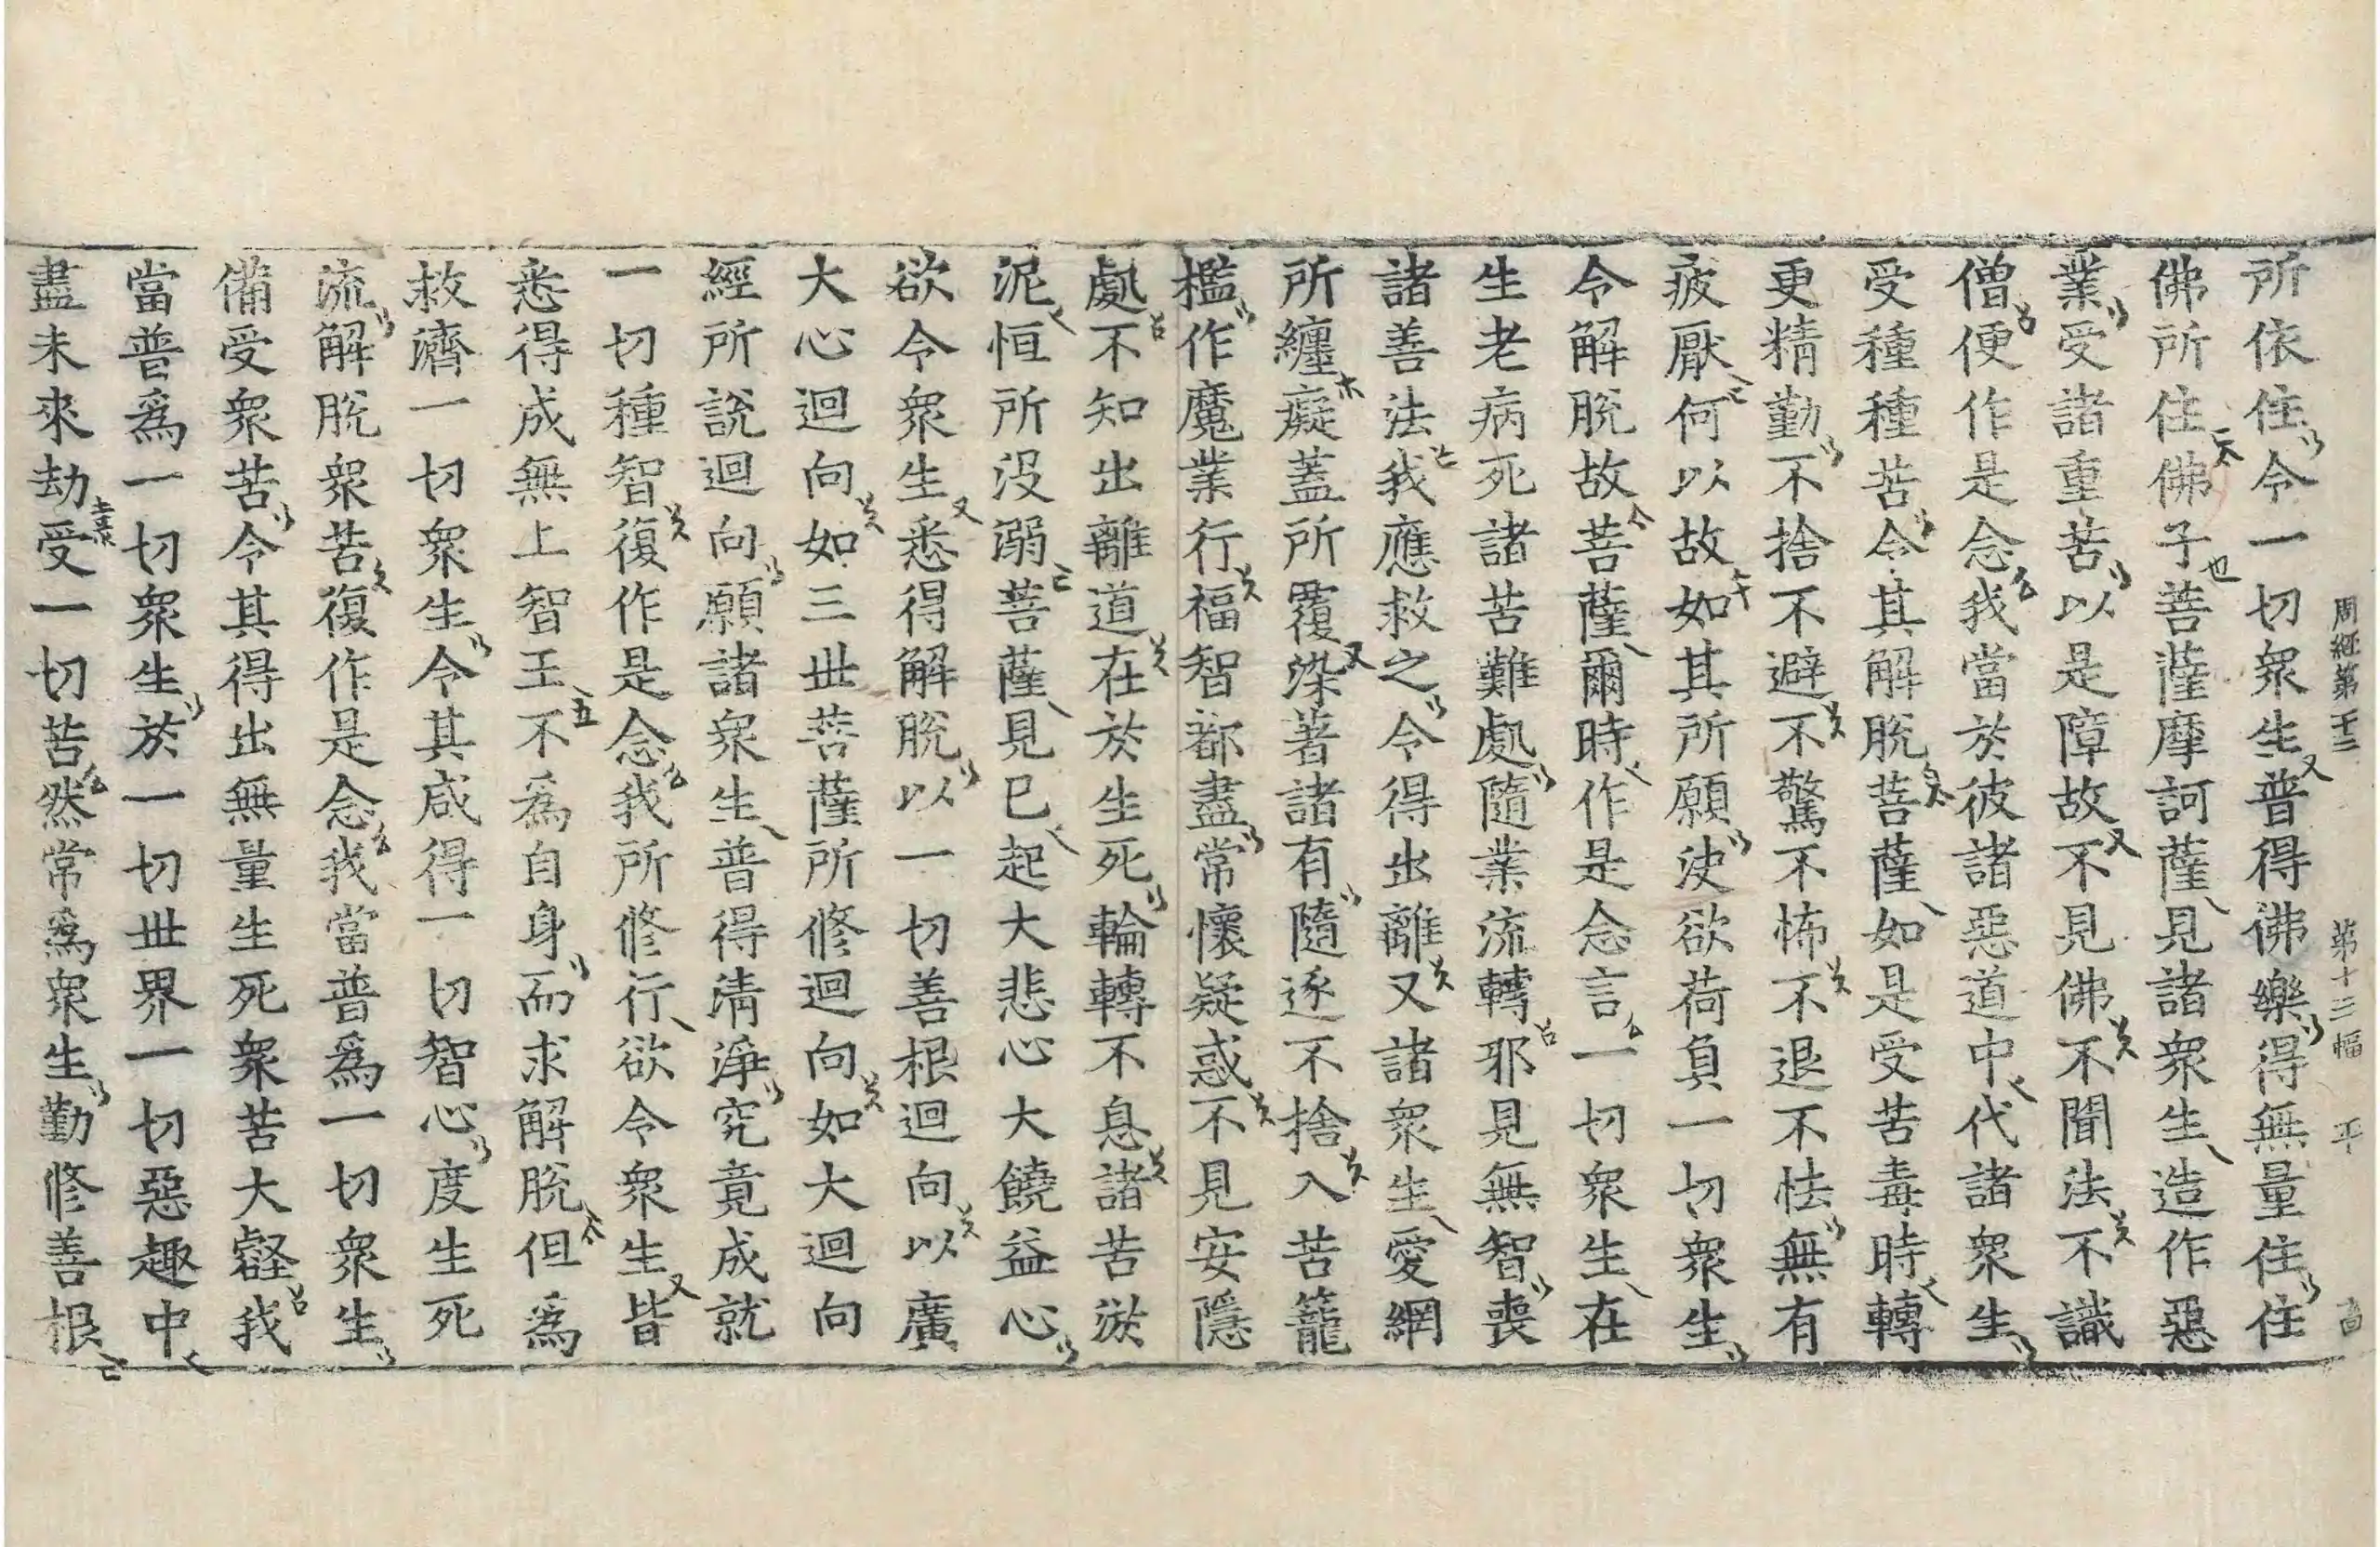 周經第二十三 第十三幅 平
所依住令一切衆生普得佛樂得無量住住
佛所住佛子菩薩摩訶薩見諸衆生造作惡
業受諸重苦以是障故不見佛不聞法不識
僧便作是念我當於彼諸惡道中代諸衆生
受種種苦令其解脫菩薩如是受苦毒時轉
更精勤不捨不避不驚不怖不退不怯無有
疲厭何以故如其所願決欲荷負一切衆生
令解脫故菩薩爾時作是念言一切衆生在
生老病死諸苦難處隨業流轉邪見無智喪
諸善法我應救之令得出離又諸衆生愛網
所纏癡蓋所覆染著諸有隨逐不捨入苦籠
檻作魔業行福智都盡常懷疑惑不見安隱
處不知出離道在於生死輪轉不息諸苦淤
泥恒所没溺菩薩見已起大悲心大饒益心
欲令衆生悉得解脫以一切善根迴向以廣
大心迴向如三世菩薩所修迴向如大迴向
經所說迴向願諸衆生普得清淨究竟成就
一切種智復作是念我所修行欲令衆生皆
悉得成無上智王不爲自身而求解脫但爲
救濟一切衆生令其咸得一切智心度生死
流解脫衆苦復作是念我當普爲一切衆生
備受衆苦令其得出無量生死衆苦大壑我
當普爲一切衆生於一切世界一切惡趣中
盡未來劫受一切苦然常爲衆生勤修善根